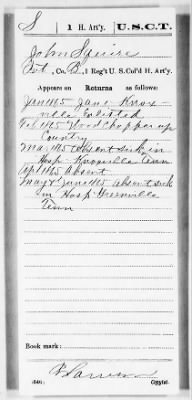 S | 1 H. Art'y. | U.S.C.T.
John Squire
Pvt, Co. B, 1 Reg't U. S. Col'd H. Art'y.
Appears on Returns as follows:
Jan 1865 Jan Knox-
ville Enlisted
Feb 1865 Wood Chopper up
Country
Mar 1865 Absent Sick in
Hosp Knoxville Tenn
Apl 1865 Absent
May & June 1865 absent sick
in Hosp Greenville
Tenn
Book mark:
(546) Copyist.